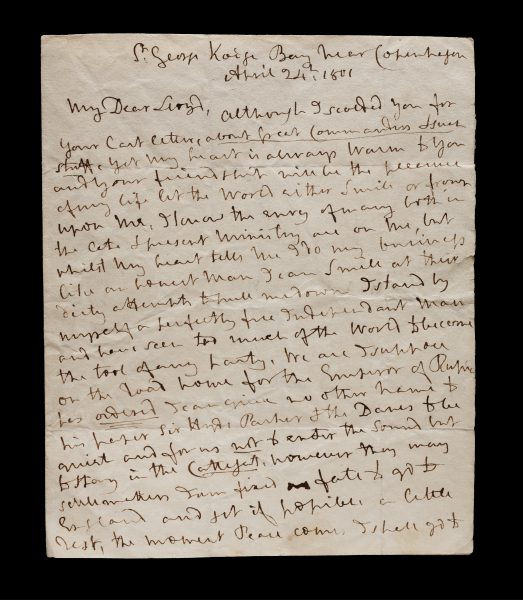 St. George Kioge Bay near Copenhagen
April 24th: 1801
My Dear Lloyd, although I scolded you for
your last letter, about Great Commanders & such
stuff, yet my heart is always warm to you
and your friendship will be the pleasure
of my life let the World either smile or frown
upon me, I know the envy of many both in
the late & present Ministry are on me, but
whilst my heart tells me I do my business
like an honest Man I can smile at their
dirty attempts to pull me down I stand by
myself a perfectly free Independant Man
and have seen too much of the World to become
the tool of any party. We are I suppose
on the road home for the Emperor of Russia
has ordered I can give no other name to
his paper Sir Hyde Parker & the Danes to be
quiet and for us not to enter the Sound but
to stay in the Cattegat, however they may
settle matters I am fixed to go to
England and get if possible a little
rest, the moment Peace comes I shall go to